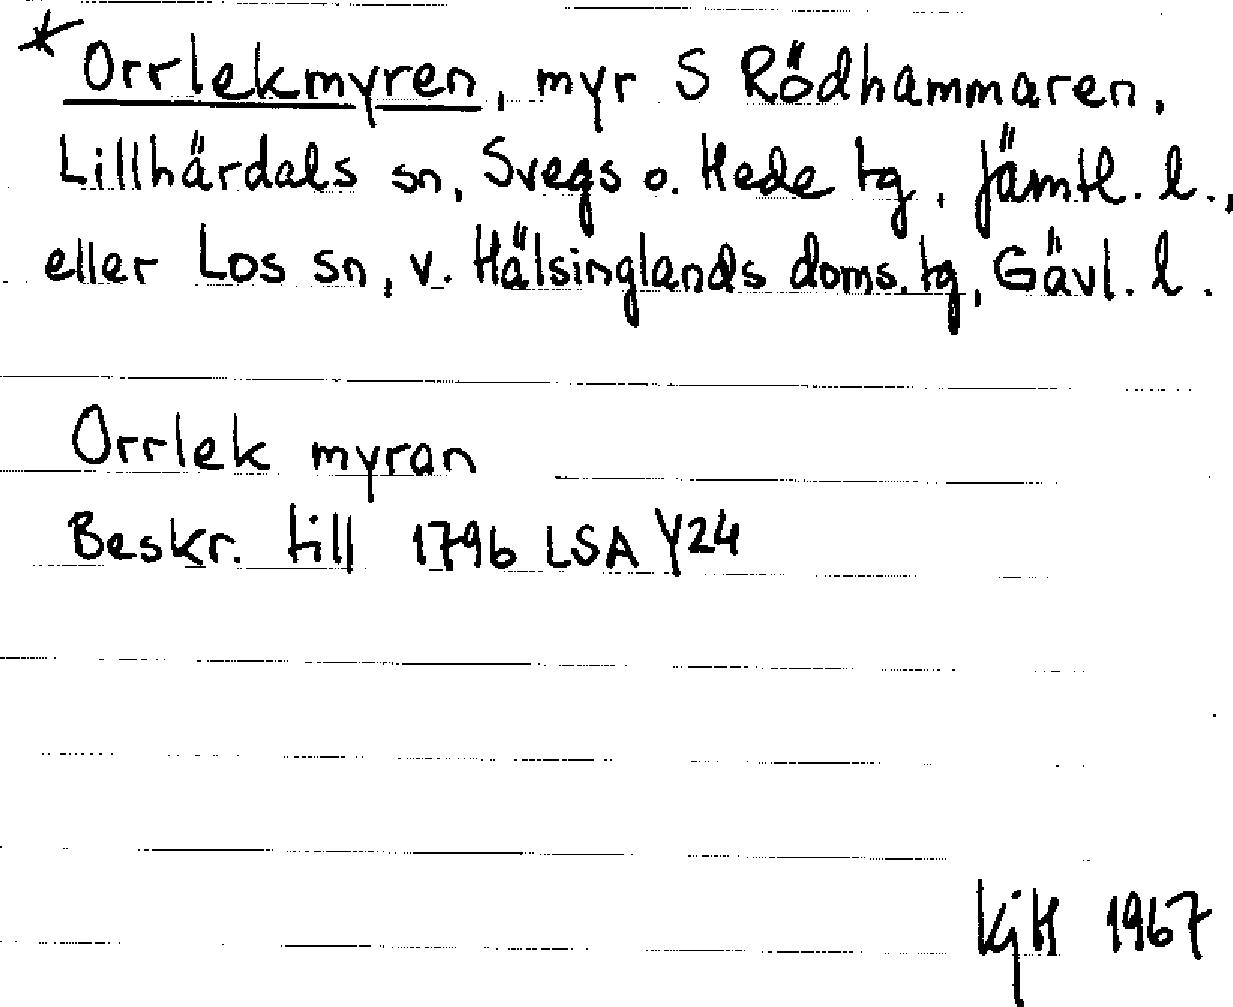 * Orrlekmyren, myr S Rödhammaren,
Lillhärdals sn, Svegs o. Hede tg, Jämtl. l.,
eller Los sn, v. Hälsinglands doms. tg, Gävl. l.
Orrlek myran
Beskr. till 1796 LSA Y24
KjH 1967